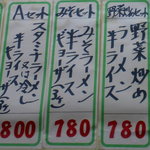 野菜炒めセット
野菜炒め
半ラーメン
ライス
780
みそセット
みそラーメン
半ライス
ギョーザ
780
Aセット
スタミナラーメン
又は冷し
半ライス
ギョーザ
800